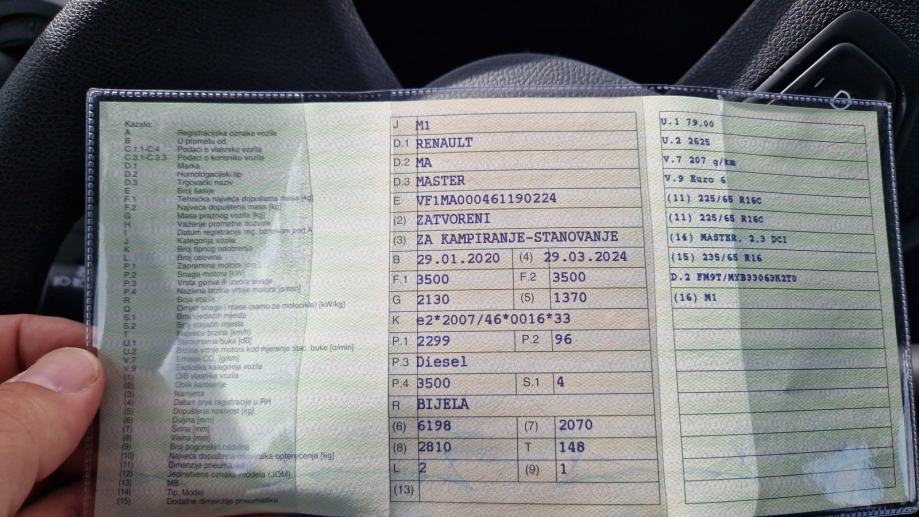 Kazalo:
A Registracijska oznaka vozila
B U prometu od
C.1.1-C.4 Podaci o vlasniku vozila
C.3.1-C.3.3 Podaci o korisniku vozila
D.1 Marka
D.2 Homologacijski tip
D.3 Trgovački naziv
E Broj šasije
F.1 Tehnička najveća dopuštena masa [kg]
F.2 Najveća dopuštena masa [kg]
G Masa praznog vozila [kg]
H Važenje prometne dozvole
I Datum registracije reg. oznakom pod A
J Kategorija vozila
K Broj tipnog odobrenja
L Broj osovina
P.1 Zapremina motora
P.2 Snaga motora [kW]
P.3 Vrsta goriva ili izvora snage
P.4 Nazivna brzina vrtnje motora
R Boja vozila
Q Omjer snage i mase (samo za motocikle) [kW/kg]
S.1 Broj sjedećih mjesta
S.2 Broj stajaćih mjesta
T Najveća brzina [km/h]
U.1 buka [dB]
U.2 Brzina vrtnje motora kod mjerenja stac. buke [o/min]
V.7 Emisija CO₂ [g/km]
V.9 Ekološka kategorija vozila
(1) OIB vlasnika vozila
(2) Oblik karoserije
(3) Namjena
(4) Datum prve registracije u RH
(5) Dopuštena nosivost [kg]
(6) Duljina [mm]
(7) Širina [mm]
(8) Visina [mm]
(9) Broj pogonskih osovina
(10) Najveća dopuštena osovinska opterećenja [kg]
(11) Dimenzije pneumatika
(12) Jedinstvena oznaka modela (JOM)
(13) MB
(14) Tip, Model
(15) Dodatne dimenzije pneumatika
J M1
D.1 RENAULT
D.2 MA
D.3 MASTER
E VF1MA000461190224
(2) ZATVORENI
(3) ZA KAMPIRANJE-STANOVANJE
B 29.01.2020 (4) 29.03.2024
F.1 3500 F.2 3500
G 2130 (5) 1370
K e2*2007/46*0016*33
P.1 2299 P.2 96
P.3 Diesel
P.4 3500 S.1 4
R BIJELA
(6) 6198 (7) 2070
(8) 2810 T 148
L 2 (9) 1
(13)
U.1 79,00
U.2 2625
V.7 207 g/km
V.9 Euro 6
(11) 225/65 R16C
(11) 225/65 R16C
(14) MASTER, 2,3 DCI
(15) 235/65 R16
D.2 FM9T/MYB33063K2T0
(16) M1